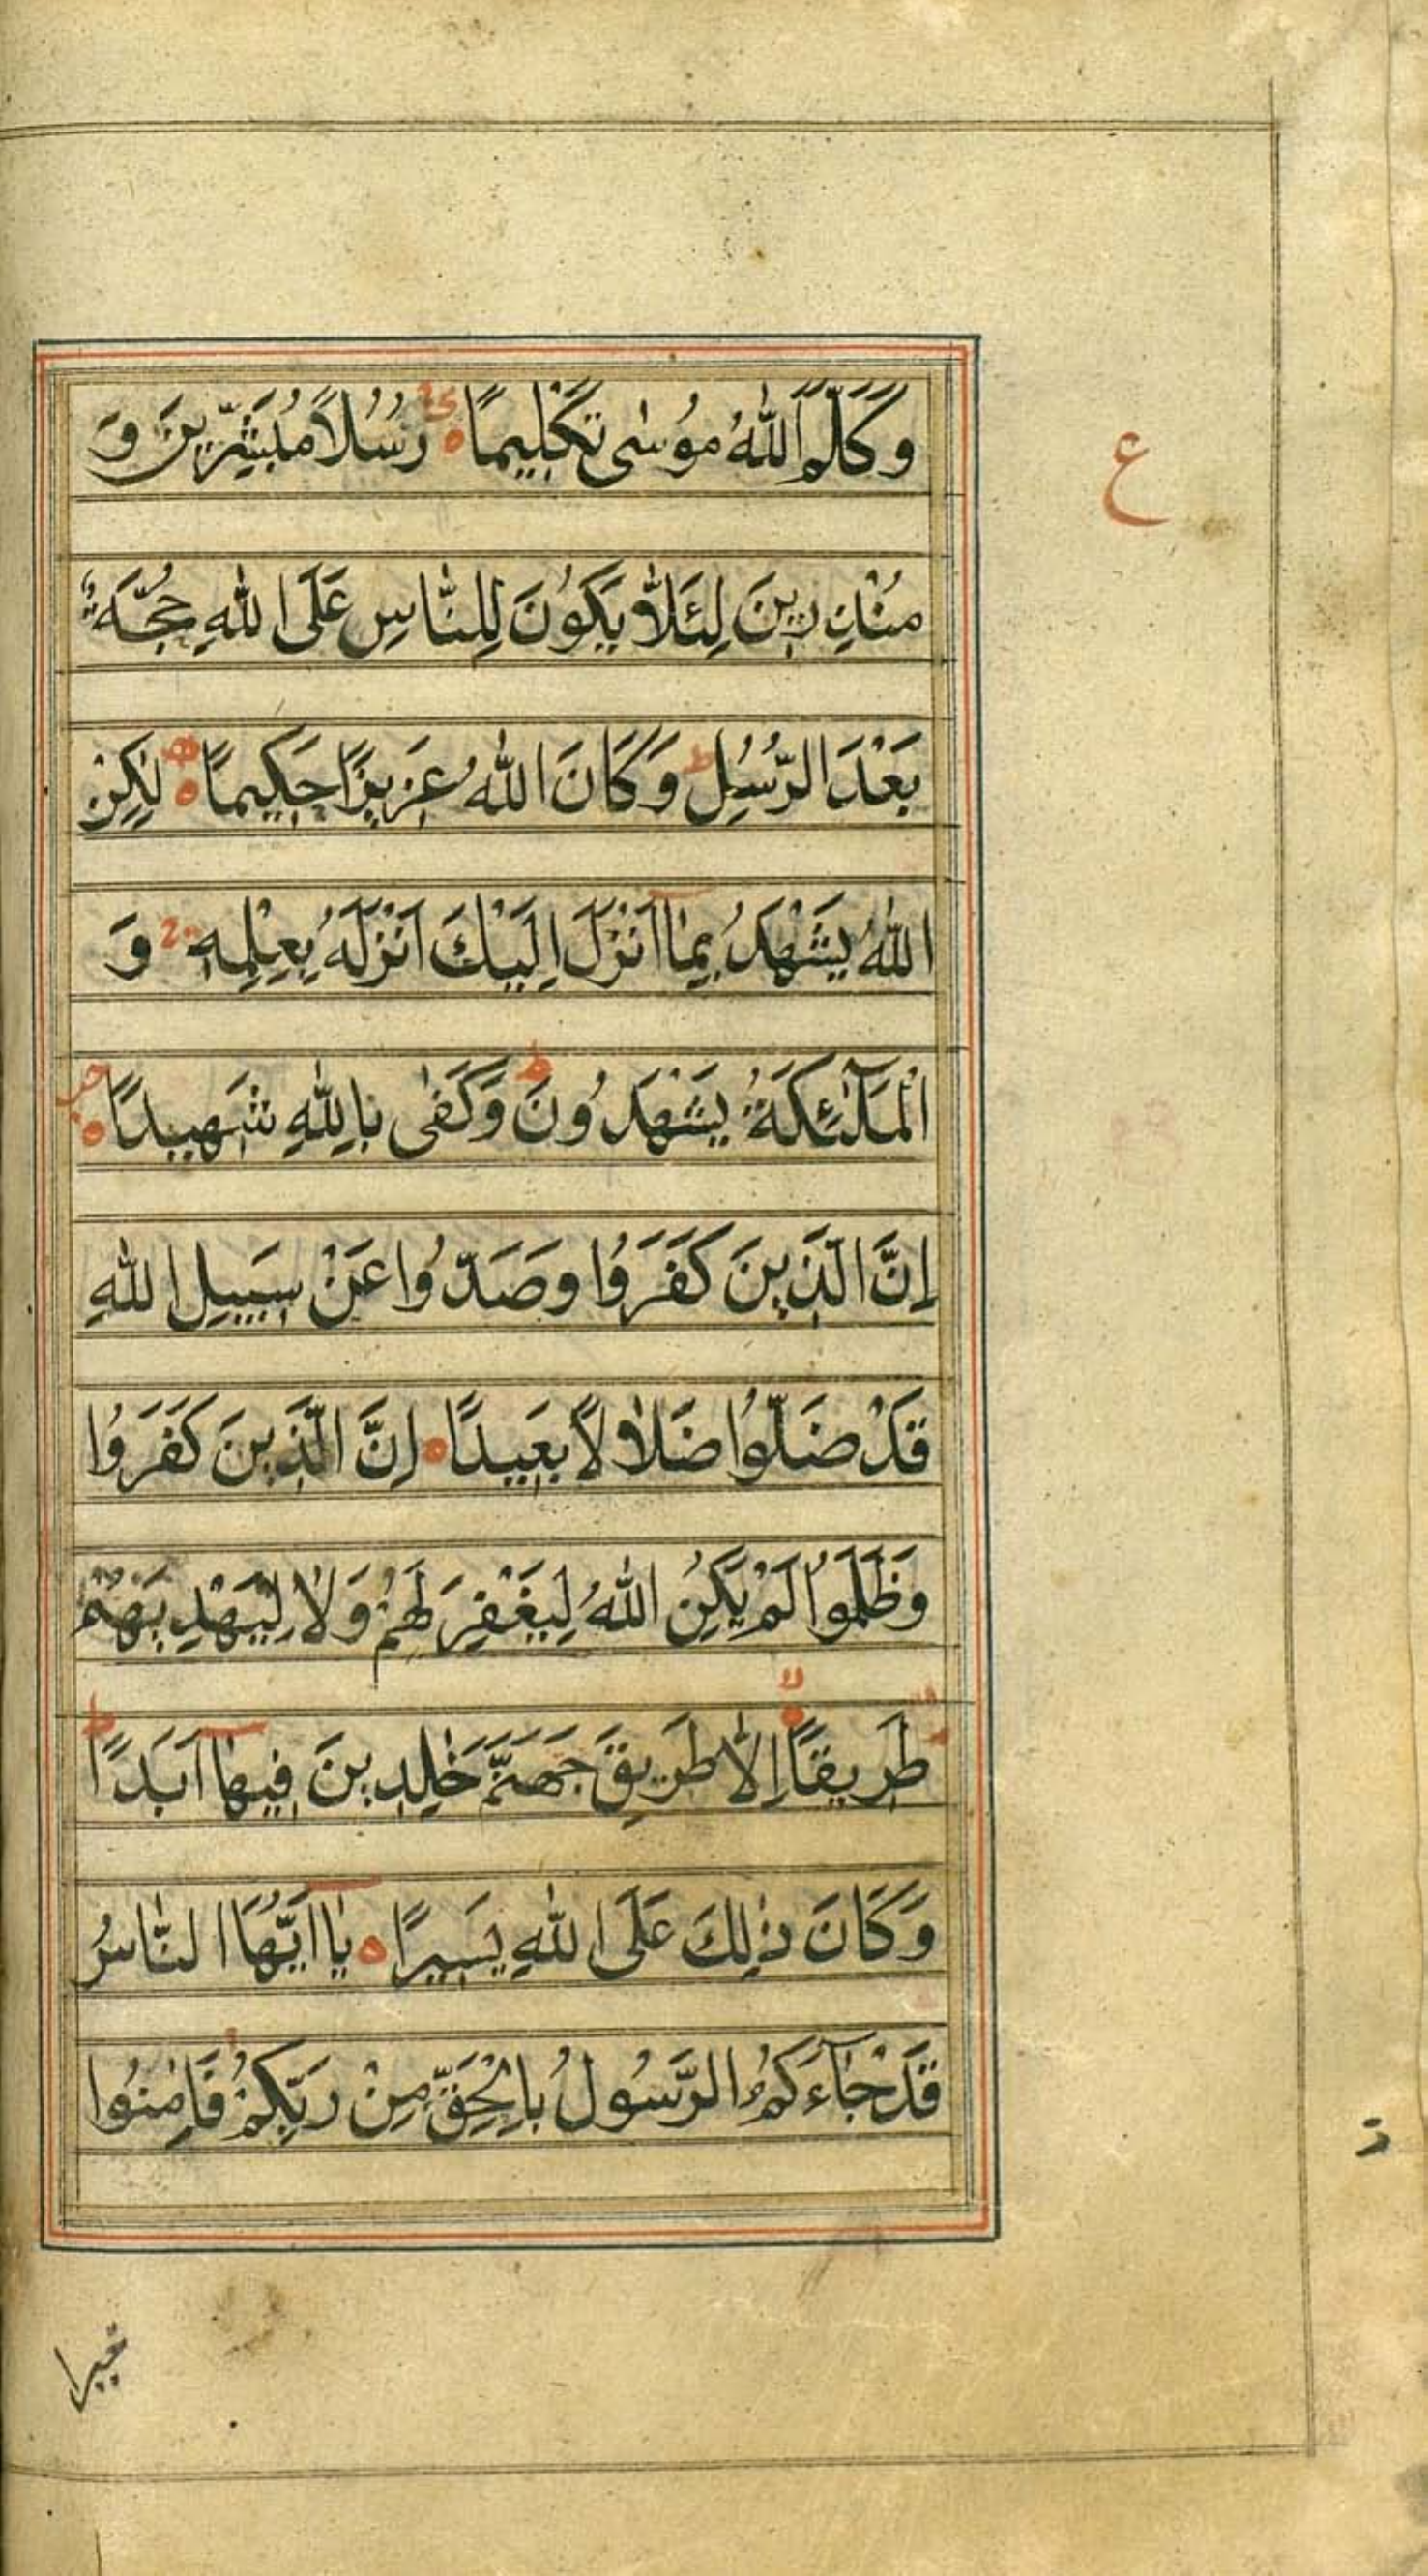 وَكَلَّمَ اللّٰهُ مُوْسٰى تَكْلِيمًا ۝ رُسُلًا مُبَشِّرِينَ وَ
ع
مُنْذِرِينَ لِئَلَّا يَكُونَ لِلنَّاسِ عَلَى اللّٰهِ حُجَّةٌ
بَعْدَ الرُّسُلِ ط وَكَانَ اللّٰهُ عَزِيزًا حَكِيمًا ۝ لٰكِنِ
اللّٰهُ يَشْهَدُ بِمَا اَنْزَلَ اِلَيْكَ اَنْزَلَهُ بِعِلْمِهٖ وَ
الْمَلٰٓئِكَةُ يَشْهَدُونَ ط وَكَفٰى بِاللّٰهِ شَهِيدًا ۝
اِنَّ الَّذِينَ كَفَرُوا وَصَدُّوا عَنْ سَبِيلِ اللّٰهِ
قَدْ ضَلُّوا ضَلَالًا بَعِيدًا ۝ اِنَّ الَّذِينَ كَفَرُوا
وَظَلَمُوا لَمْ يَكُنِ اللّٰهُ لِيَغْفِرَ لَهُمْ وَلَا لِيَهْدِيَهُمْ
طَرِيقًا ۝ لا اِلَّا طَرِيقَ جَهَنَّمَ خٰلِدِينَ فِيهَا اَبَدًا ط
وَكَانَ ذٰلِكَ عَلَى اللّٰهِ يَسِيرًا ۝ يَا اَيُّهَا النَّاسُ
قَدْ جَآءَكُمُ الرَّسُولُ بِالْحَقِّ مِنْ رَبِّكُمْ فَاٰمِنُوا
خيرا